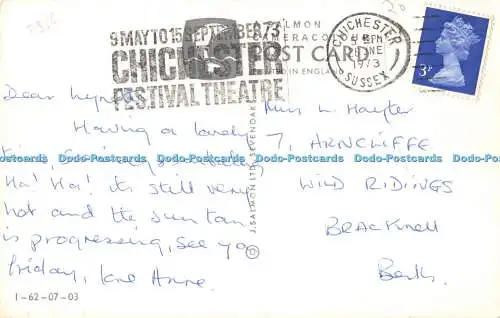 9 MAY TO 15 SEPTEMBER 73
CHICHESTER
FESTIVAL THEATRE
SALMON
CAMERACOLOUR
POST CARD
IN ENGLAND
CHICHESTER
PM
JUNE
1973
SUSSEX
3P
Dear
Having a lovely
Ha! Ha! its still very
hot and the sun tan
is progressing, see you
friday, love Anne.
Miss L. Hayter
7, ARNCLIFFE
WILD RIDINGS
BRACKNELL
Berks.
J. SALMON LTD. SEVENOAKS
1-62-07-03
Dodo-Postcards Dodo-Postcards Dodo-Postcards Dodo-Postcards Dodo-Postcards